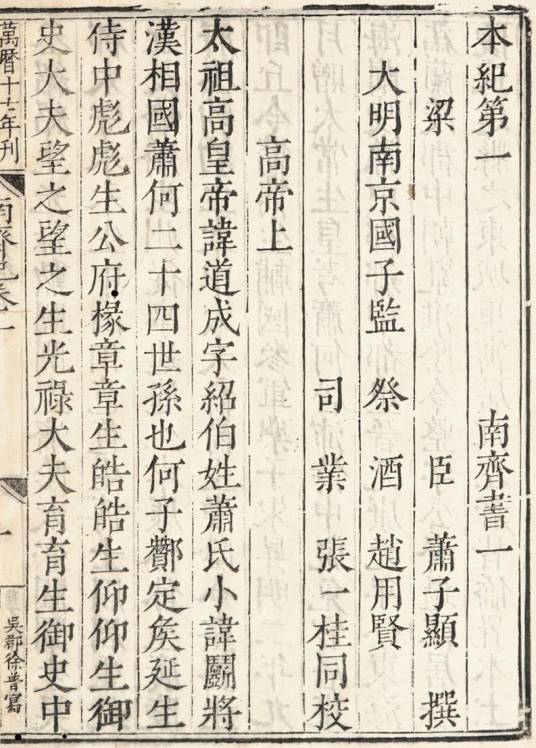 本紀第一 南齊書一
梁 臣 蕭子顯 撰
大明南京國子監 祭 酒 趙用賢
司 業 張一桂同校
高帝上
太祖高皇帝諱道成字紹伯姓蕭氏小諱鬭將
漢相國蕭何二十四世孫也何子酇定矦延生
侍中彪彪生公府椽章章生皓皓生仰仰生御
史大夫望之望之生光祿大夫育育生御史中
萬曆十七年刊 南齊紀卷一 一 吳郡徐普寫